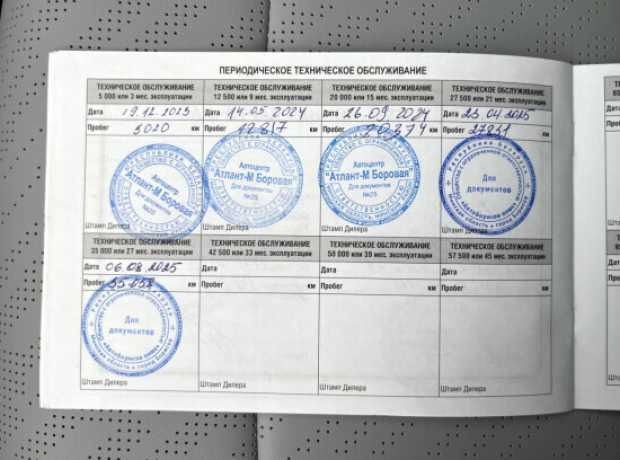 ПЕРИОДИЧЕСКОЕ ТЕХНИЧЕСКОЕ ОБСЛУЖИВАНИЕ
ТЕХНИЧЕСКОЕ ОБСЛУЖИВАНИЕ
5 000 или 3 мес. эксплуатации
Дата 19.12.2023
Пробег 5020 км
Автоцентр
"Атлант-М Боровая"
Для документов
№25
Штамп Дилера
ТЕХНИЧЕСКОЕ ОБСЛУЖИВАНИЕ
12 500 или 9 мес. эксплуатации
Дата 14.05.2024
Пробег 12817 км
Автоцентр
"Атлант-М Боровая"
Для документов
№25
Штамп Дилера
ТЕХНИЧЕСКОЕ ОБСЛУЖИВАНИЕ
20 000 или 15 мес. эксплуатации
Дата 26.09.2024
Пробег 20374 км
Автоцентр
"Атлант-М Боровая"
Для документов
№25
Штамп Дилера
ТЕХНИЧЕСКОЕ ОБСЛУЖИВАНИЕ
27 500 или 21 мес. эксплуатации
Дата 23.04.2025
Пробег км
Республика Беларусь
Для
документов
Штамп Дилера
ТЕХНИЧЕСКОЕ ОБСЛУЖИВАНИЕ
35 000 или 27 мес. эксплуатации
Дата 06.08.2025
Пробег км
Для
документов
Штамп Дилера
ТЕХНИЧЕСКОЕ ОБСЛУЖИВАНИЕ
42 500 или 33 мес. эксплуатации
Дата
Пробег км
Штамп Дилера
ТЕХНИЧЕСКОЕ ОБСЛУЖИВАНИЕ
50 000 или 39 мес. эксплуатации
Дата
Пробег км
Штамп Дилера
ТЕХНИЧЕСКОЕ ОБСЛУЖИВАНИЕ
57 500 или 45 мес. эксплуатации
Дата
Пробег км
Штамп Дилера